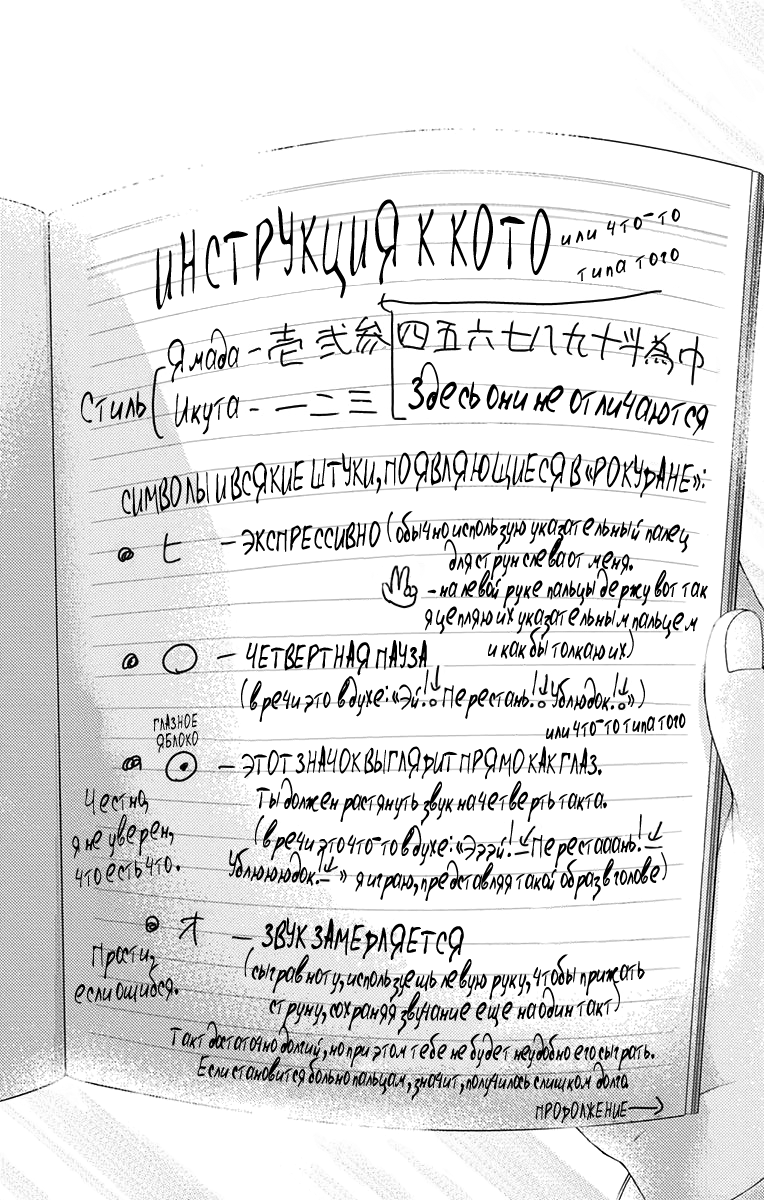 ИНСТРУКЦИЯ К КОТО или что-то
типа того
Стиль
Ямада - 壱 弐 参 四五六七八九十斗為巾
Икута - 一二三 Здесь они не отличаются
СИМВОЛЫ И ВСЯКИЕ ШТУКИ, ПОЯВЛЯЮЩИЕСЯ В «РОКУДАНЕ»:
ヒ — ЭКСПРЕССИВНО (обычно использую указательный палец
для струн слева от меня.
- на левой руке пальцы держу вот так
я цепляю их указательным пальцем
и как бы толкаю их)
— ЧЕТВЕРТНАЯ ПАУЗА
(в речи это в духе: «Эй! Перестань! Ублюдок!»)
или что-то типа того
ГЛАЗНОЕ
ЯБЛОКО
— ЭТОТ ЗНАЧОК ВЫГЛЯДИТ ПРЯМО КАК ГЛАЗ.
Ты должен растянуть звук на четверть такта.
(в речи это что-то в духе: «Эээй! Перестааань!
Ублюююдок!» я играю, представляя такой образ в голове)
Честно,
я не уверен,
что есть что.
オ — ЗВУК ЗАМЕДЛЯЕТСЯ
(сыграв ноту, используешь левую руку, чтобы прижать
струну, сохраняя звучание еще на один такт)
Прости,
если ошибся.
Такт достаточно долгий, но при этом тебе не будет неудобно его сыграть.
Если становится больно пальцам, значит, получилось слишком долго
ПРОДОЛЖЕНИЕ →